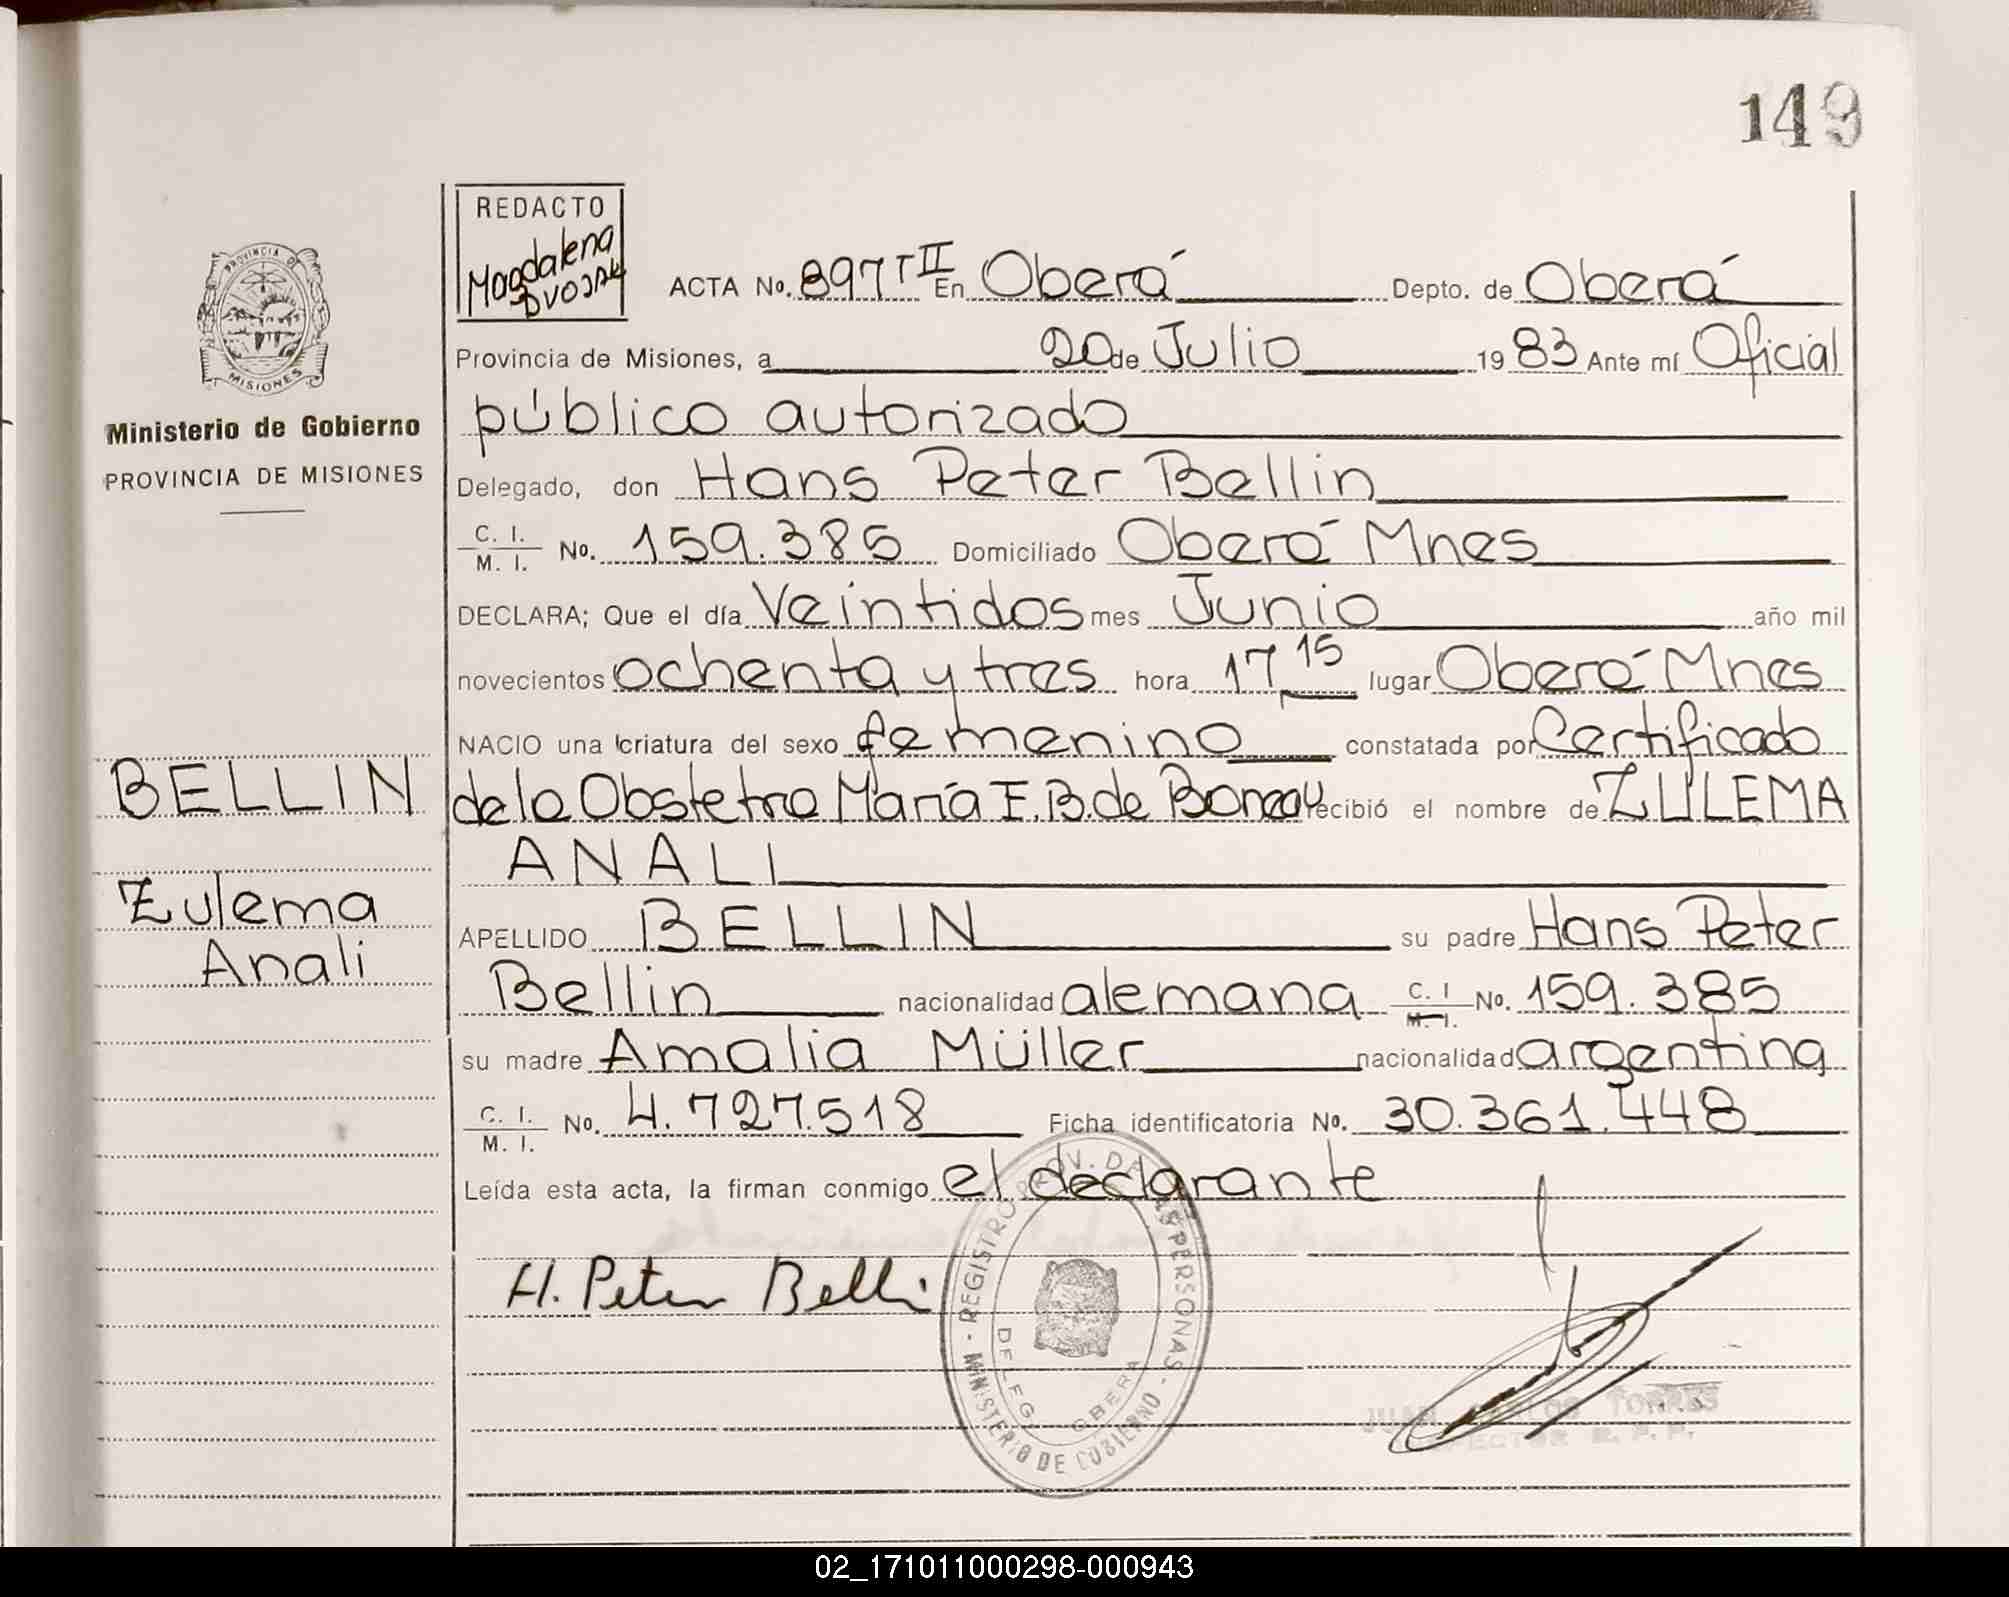 149
REDACTO
Magdalena
DVOJAK
PROVINCIA DE
MISIONES
Ministerio de Gobierno
PROVINCIA DE MISIONES
ACTA No. 897 T II En Oberá Depto. de Oberá
Provincia de Misiones, a 20 de Julio 19 83 Ante mí Oficial
público autorizado
Delegado, don Hans Peter Bellin
C. I. / M. I. No. 159.385 Domiciliado Oberá Mnes
DECLARA; Que el día Veintidos mes Junio año mil
novecientos ochenta y tres hora 17 15 lugar Oberá Mnes
NACIO una criatura del sexo femenino constatada por Certificado
de la Obstetra María E. B. de y recibió el nombre de ZULEMA
ANALI
APELLIDO BELLIN su padre Hans Peter
Bellin nacionalidad alemana C. I / M. I. No. 159.385
su madre Amalia Müller nacionalidad argentina
C. I. / M. I. No. 4.727.518 Ficha identificatoria No. 30.361.448
Leída esta acta, la firman conmigo el declarante
BELLIN
Zulema
Anali
H. Peter Bellin
REGISTRO PROV. DE LAS PERSONAS - MINISTERIO DE GOBIERNO -
DELEG. OBERA
JUAN CARLOS TORRES
R. P. P.
02_171011000298-000943